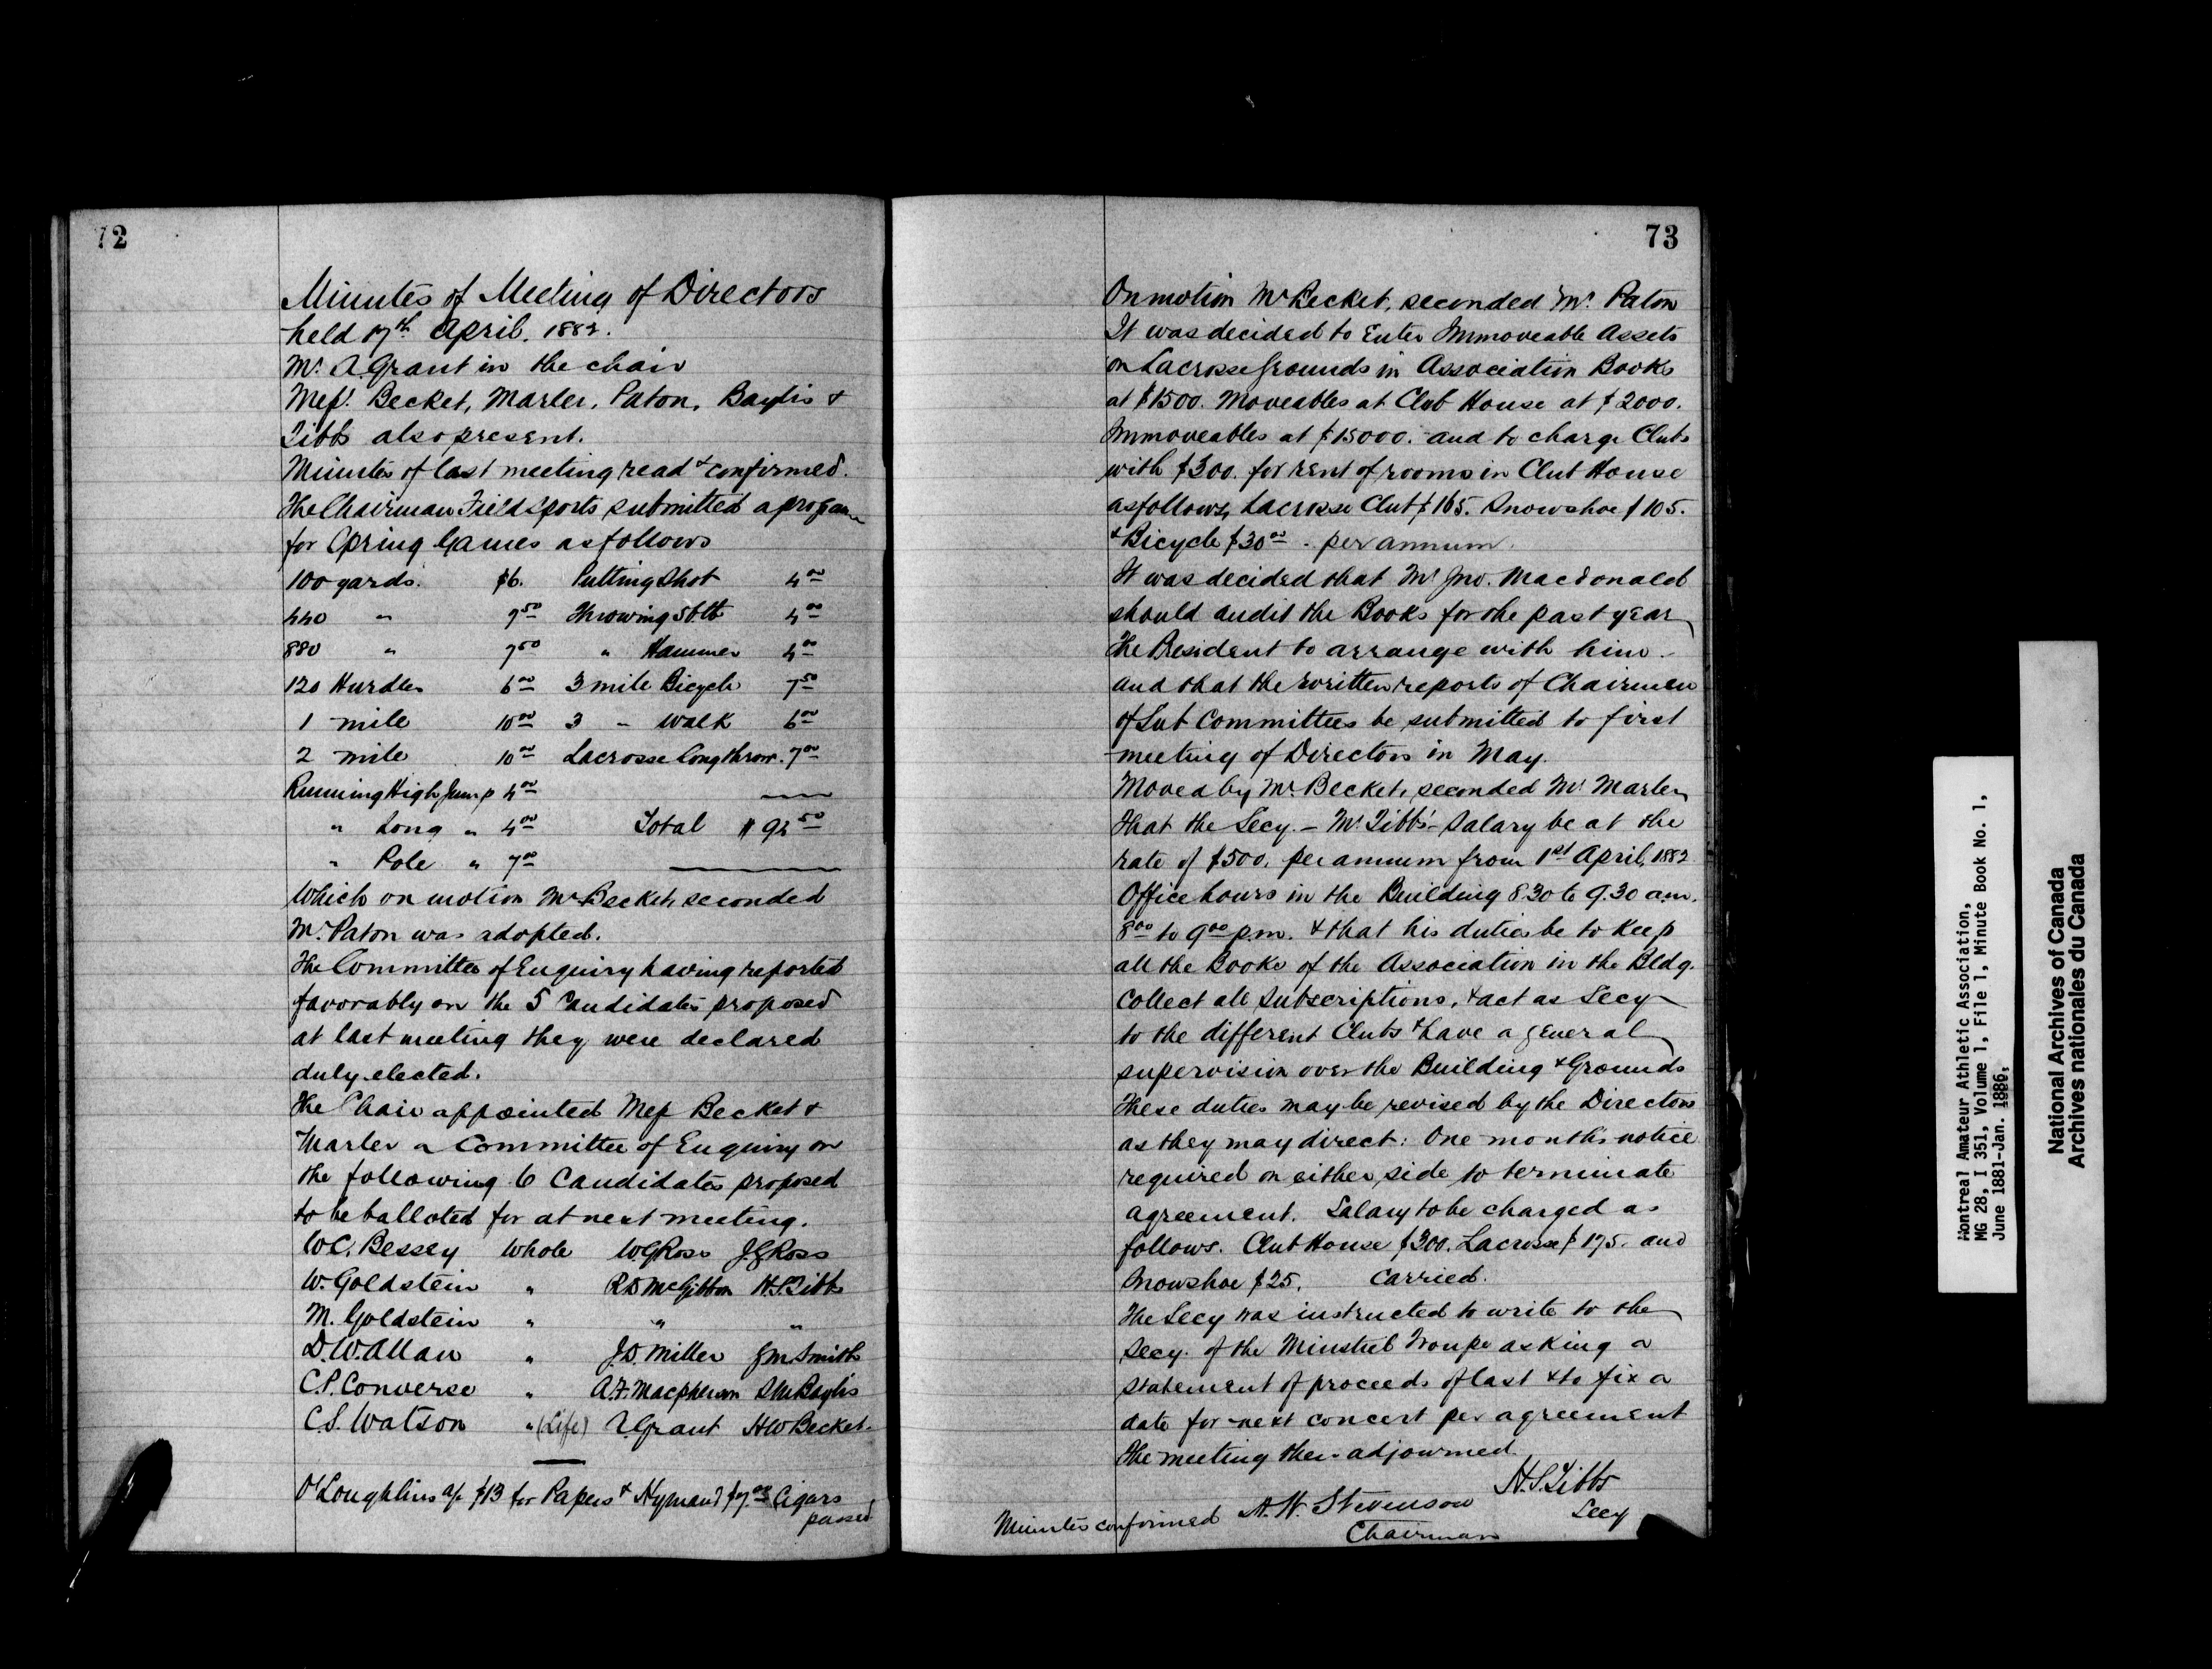 72
Minutes of Meeting of Directors
held 17th April. 1882.
Mr. A. Grant in the chair
Messrs. Becket, Marler, Paton, Baylis &
Tibbs also present.
Minutes of last meeting read & confirmed.
The Chairman Field Sports submitted a program
for Spring Games as follows
100 yards. $6. Putting Shot 4 00
440 " 7 50 Throwing 56 lb 4 00
880 " 7 50 " Hammer 4 00
120 Hurdles 6 00 3 mile Bicycle 7 50
1 mile 10 00 3 " Walk 6 00
2 mile 10 00 Lacrosse long throw. 7 00
Running High Jump 4 00
" Long " 4 00 Total $ 94 50
" Pole " 7 00
Which on motion Mr Becket, seconded
Mr. Paton was adopted.
The Committee of Enquiry having reported
favorably on the 5 Candidates proposed
at last meeting they were declared
duly elected.
The Chair appointed Mess Becket &
Marler a Committee of Enquiry on
the following 6 Candidates proposed
to be balloted for at next meeting.
W.C. Bessey Whole W.G. Ross J.G. Ross
W. Goldstein " R.D. McGibbon H.S. Tibbs
M. Goldstein " " "
D.W. Allan " J.D. Miller G.M. Smith
C.P. Converse " A.F. Macpherson S.M. Baylis
C.S. Watson " (Life) A. Grant H.W. Becket.
O'Loughlins a/c $13 for Papers & Hymans $7.00 Cigars
passed
73
On motion Mr Becket, seconded Mr. Paton
It was decided to Enter Immoveable Assets
on Lacrosse Grounds in Association Books
at $1500. Moveables at Club House at $2000.
Immoveables at $15000. and to charge Clubs
with $300. for rent of rooms in Club House
as follows, Lacrosse Club $165. Snowshoe $105.
& Bicycle $30 00. per annum.
It was decided that Mr Jno. Macdonald
should audit the Books for the past year
The President to arrange with him.
and that the written reports of Chairmen
of Sub Committees be submitted to first
meeting of Directors in May.
Moved by Mr. Becket, seconded Mr. Marler
that the Secy. - Mr. Tibbs' - Salary be at the
rate of $500. per annum from 1st April, 1882
Office hours in the Building 8.30 to 9.30 a.m.
8 00 to 9 00 p.m. & that his duties be to keep
all the Books of the Association in the Bldg.
Collect all Subscriptions, & act as Secy
to the different Clubs & have a general
supervision over the Building & Grounds
These duties may be revised by the Directors
as they may direct: One months notice
required on either side to terminate
agreement. Salary to be charged as
follows. Club House $300. Lacrosse $175. and
Snowshoe $25. Carried.
The Secy was instructed to write to the
Secy. of the Minstrel Troupe asking a
statement of proceeds of last & to fix a
date for next concert per agreement
The meeting then adjourned.
H.S. Tibbs
Secy
Minutes confirmed A.W. Stevenson
Chairman
Montreal Amateur Athletic Association,
MG 28, I 351, Volume 1, File 1, Minute Book No. 1,
June 1881-Jan. 1886.
National Archives of Canada
Archives nationales du Canada